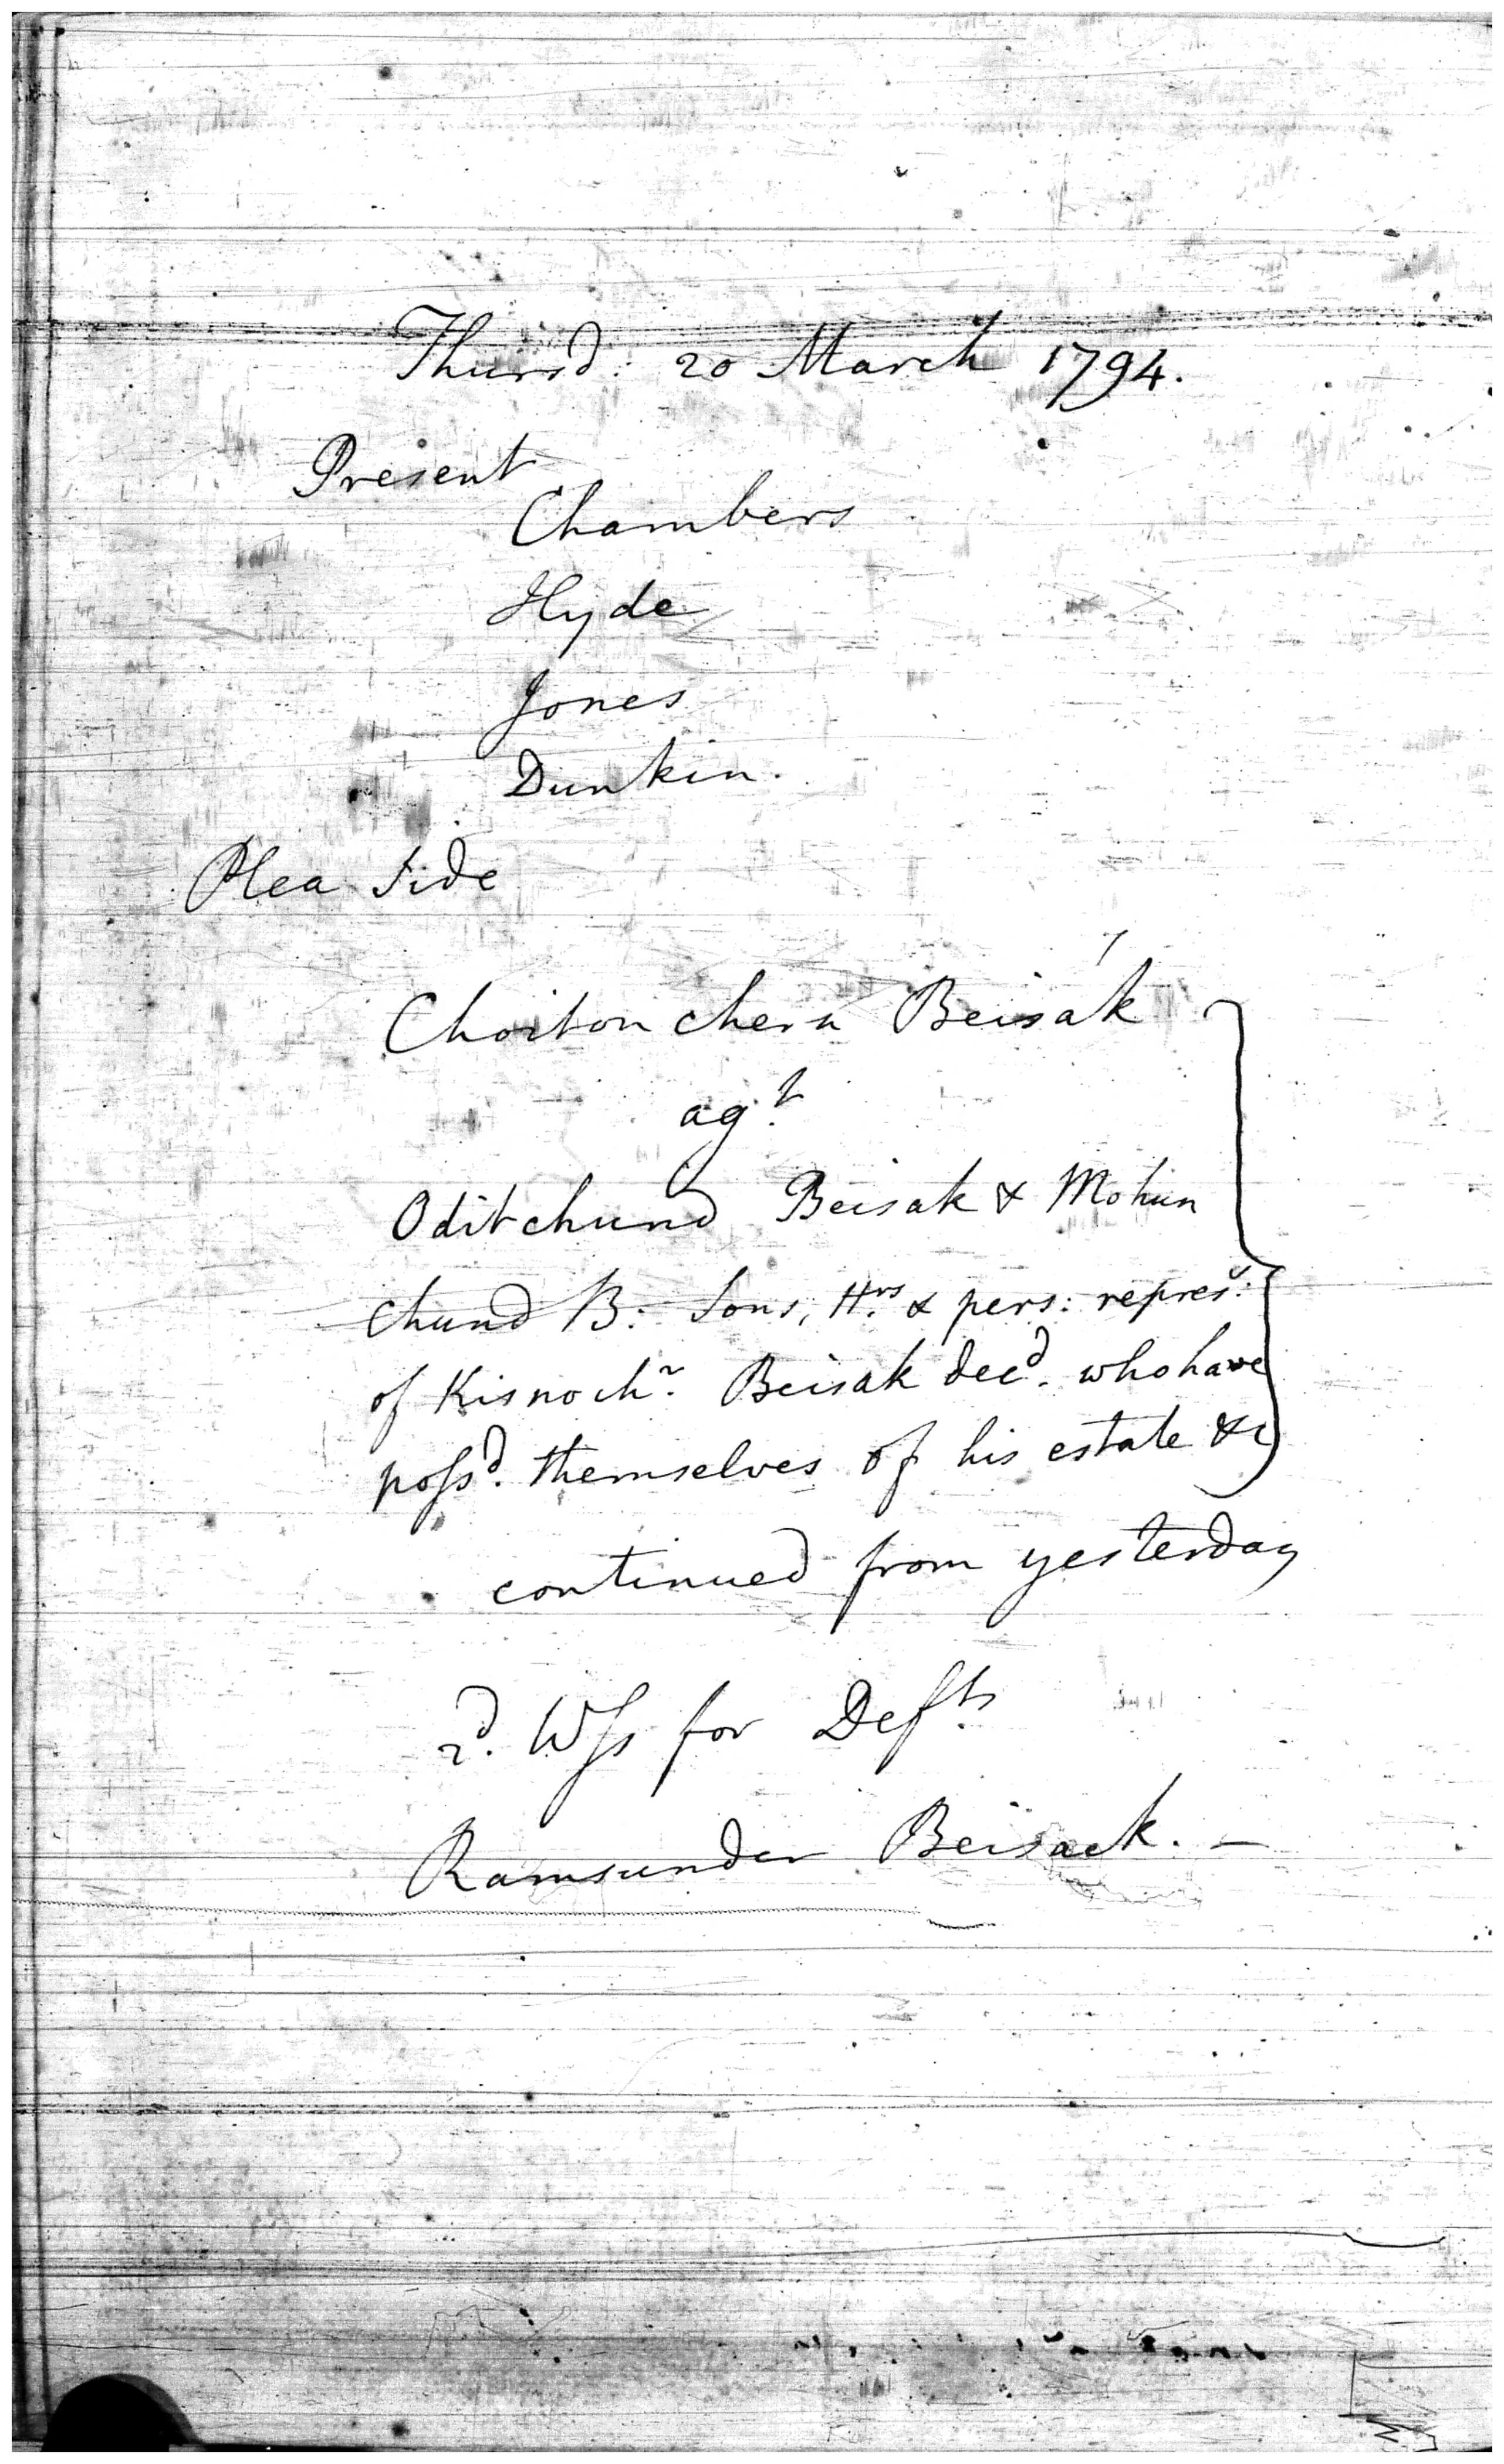 Thursd: 20 March 1794.
Present
Chambers
Hyde
Jones
Dunkin.
Plea Side
Choiton chern Beisak
agt.
Oditchund Beisak & Mohun
Chund B: Sons, Hrs. & pers: represv:
of Kisnochr. Beisak decd. who have
possd. themselves of his estate &c
continued from yesterday
2d. Wss for Defts.
Ramsunder Beisack. —